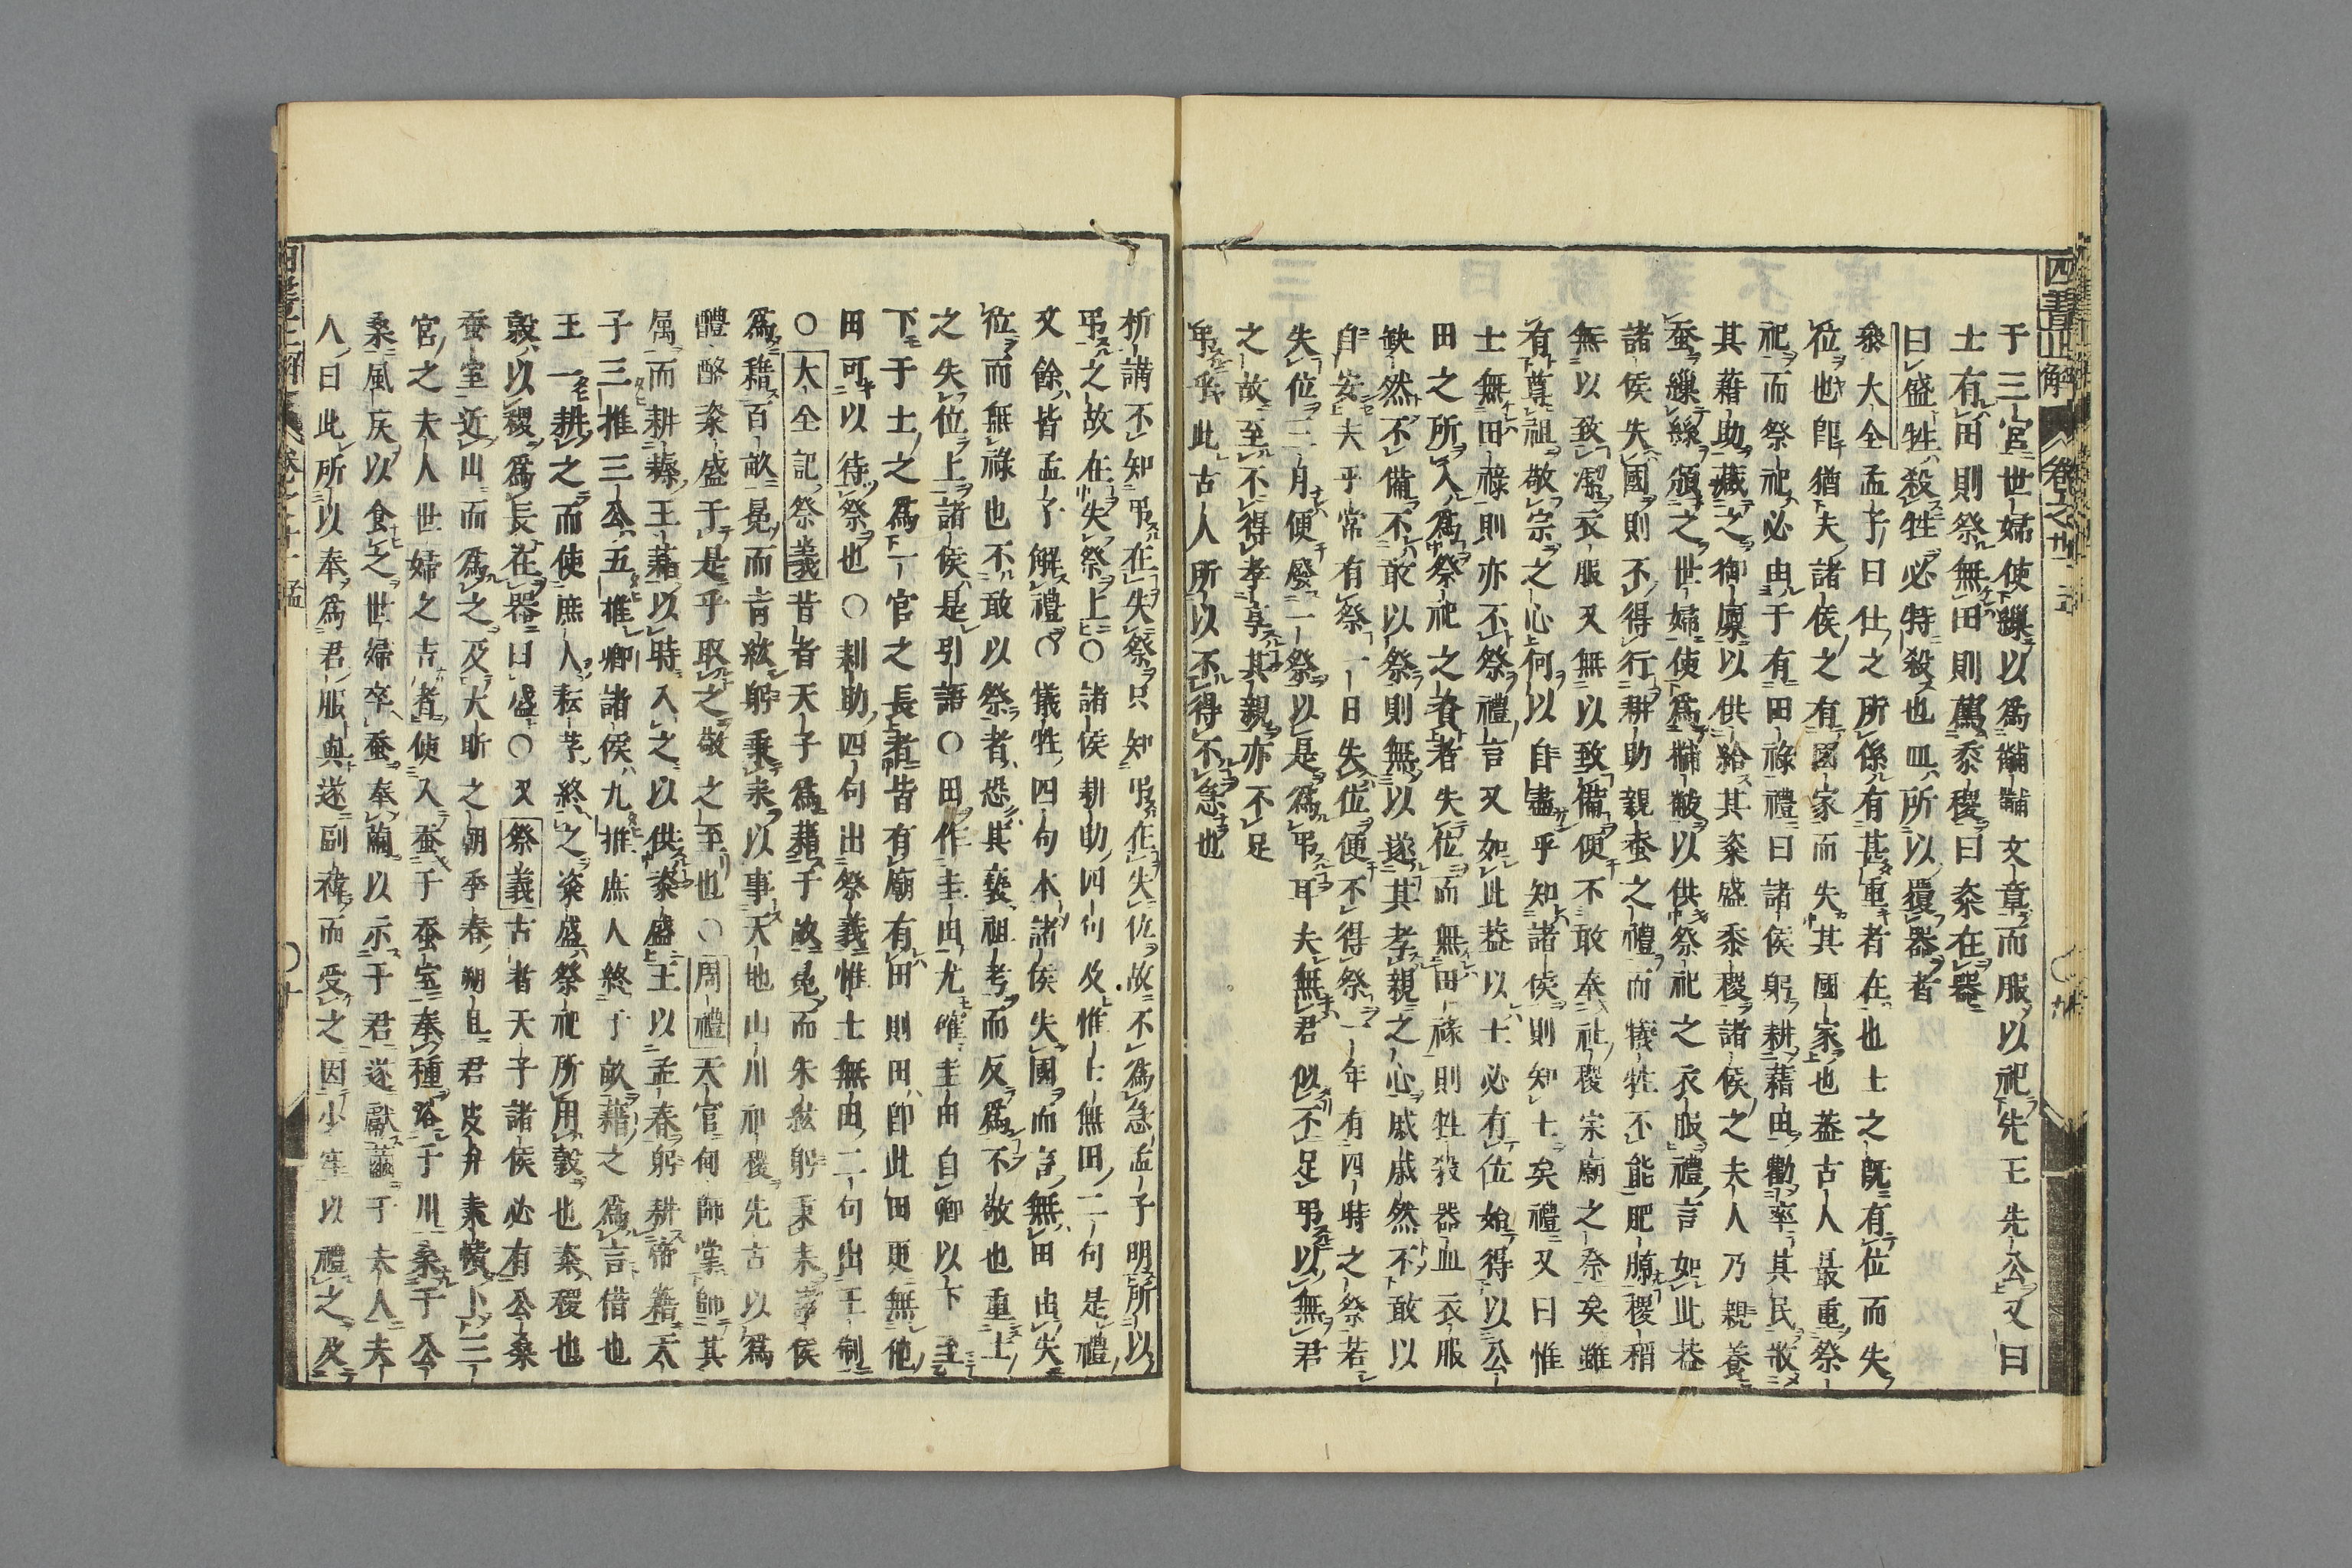 四書正解
卷之廿一 孟
于三宮世婦使繅以爲黼黻文章而服以祀先王先公又曰
士有田則祭無田則薦黍稷曰粢在器
曰盛牲殺牲必特殺也皿所以覆器者
叅大全孟子曰仕之所係有甚重者在也士之旣有位而失
位也卽猶夫諸侯之有國家而失其國家也葢古人最重祭
祀而祭祀必由于有田祿禮曰諸侯躬耕藉田勸率其民收
其藉助藏之御廩以供給其粢盛黍稷諸侯之夫人乃親養
蚕繅絲頒之世婦使爲黼黻以供祭祀之衣服禮言如此葢
諸侯失國則不得行耕助親蚕之禮而犧牲不能肥腯稷稻
無以致潔衣服又無以致備便不敢奉社稷宗廟之祭矣雖
有尊祖敬宗之心何以自盡乎知諸侯則知士矣禮又曰惟
士無田祿則亦不祭禮言又如此葢以士必有位始得以公
田之所入爲祭祀之資者失位而無田祿則牲殺器皿衣服
缺然不備不敢以祭則無以遂其孝親之心戚戚然不敢以
自安夫乎常有祭一日失位便不得祭一年有四時之祭若
失位三月便廢一祭以是爲吊耳夫無君似不足吊以無君
之故至不得孝享其親亦不足
吊乎此古人所以不得不急也
析講不知吊在失祭只知吊在失位故不爲急孟子明所以
吊之故在失祭上〇諸侯耕助四句及惟士無田二句是禮
文餘皆孟子解禮〇犧牲四句本諸侯失國而言無田由失
位而無祿也不敢以祭者恐其褻祖考而反爲不敬也重士
之失位上諸侯是引語〇田作圭田尤確圭田自卿以下至
下于士之爲一官之長者皆有廟有田則田卽此田更無他
田可以待祭也〇耕助四句出祭義惟士無田二句出王制
〇大全記祭義昔者天子爲藉于畝冕而朱紘躬秉耒諸侯
爲藉百畝冕而靑紘躬秉耒以事天地山川社稷先古以爲
醴酪粢盛于是乎取之敬之至也〇周禮天官甸師掌帥其
属而耕耨王藉以時入之以供粢盛王以孟春躬耕帝籍天
子三推三公五推卿諸侯九推庶人終于畝藉之爲言借也
王一耕之而使庶人耘芓終之粢盛祭祀所用穀也粢稷也
穀以稷爲長在器曰盛〇又祭義古者天子諸侯必有公桑
蚕室近山而爲之及大昕之朝季春朔旦君皮弁素積卜三
宮之夫人世婦之吉者使入蚕于蚕室奉種浴于川桑于公
桑風戾以食之世婦卒蚕奉繭以示于君遂獻繭于夫人夫
人曰此所以奉爲君服與遂副褘而受之因少牢以禮之及